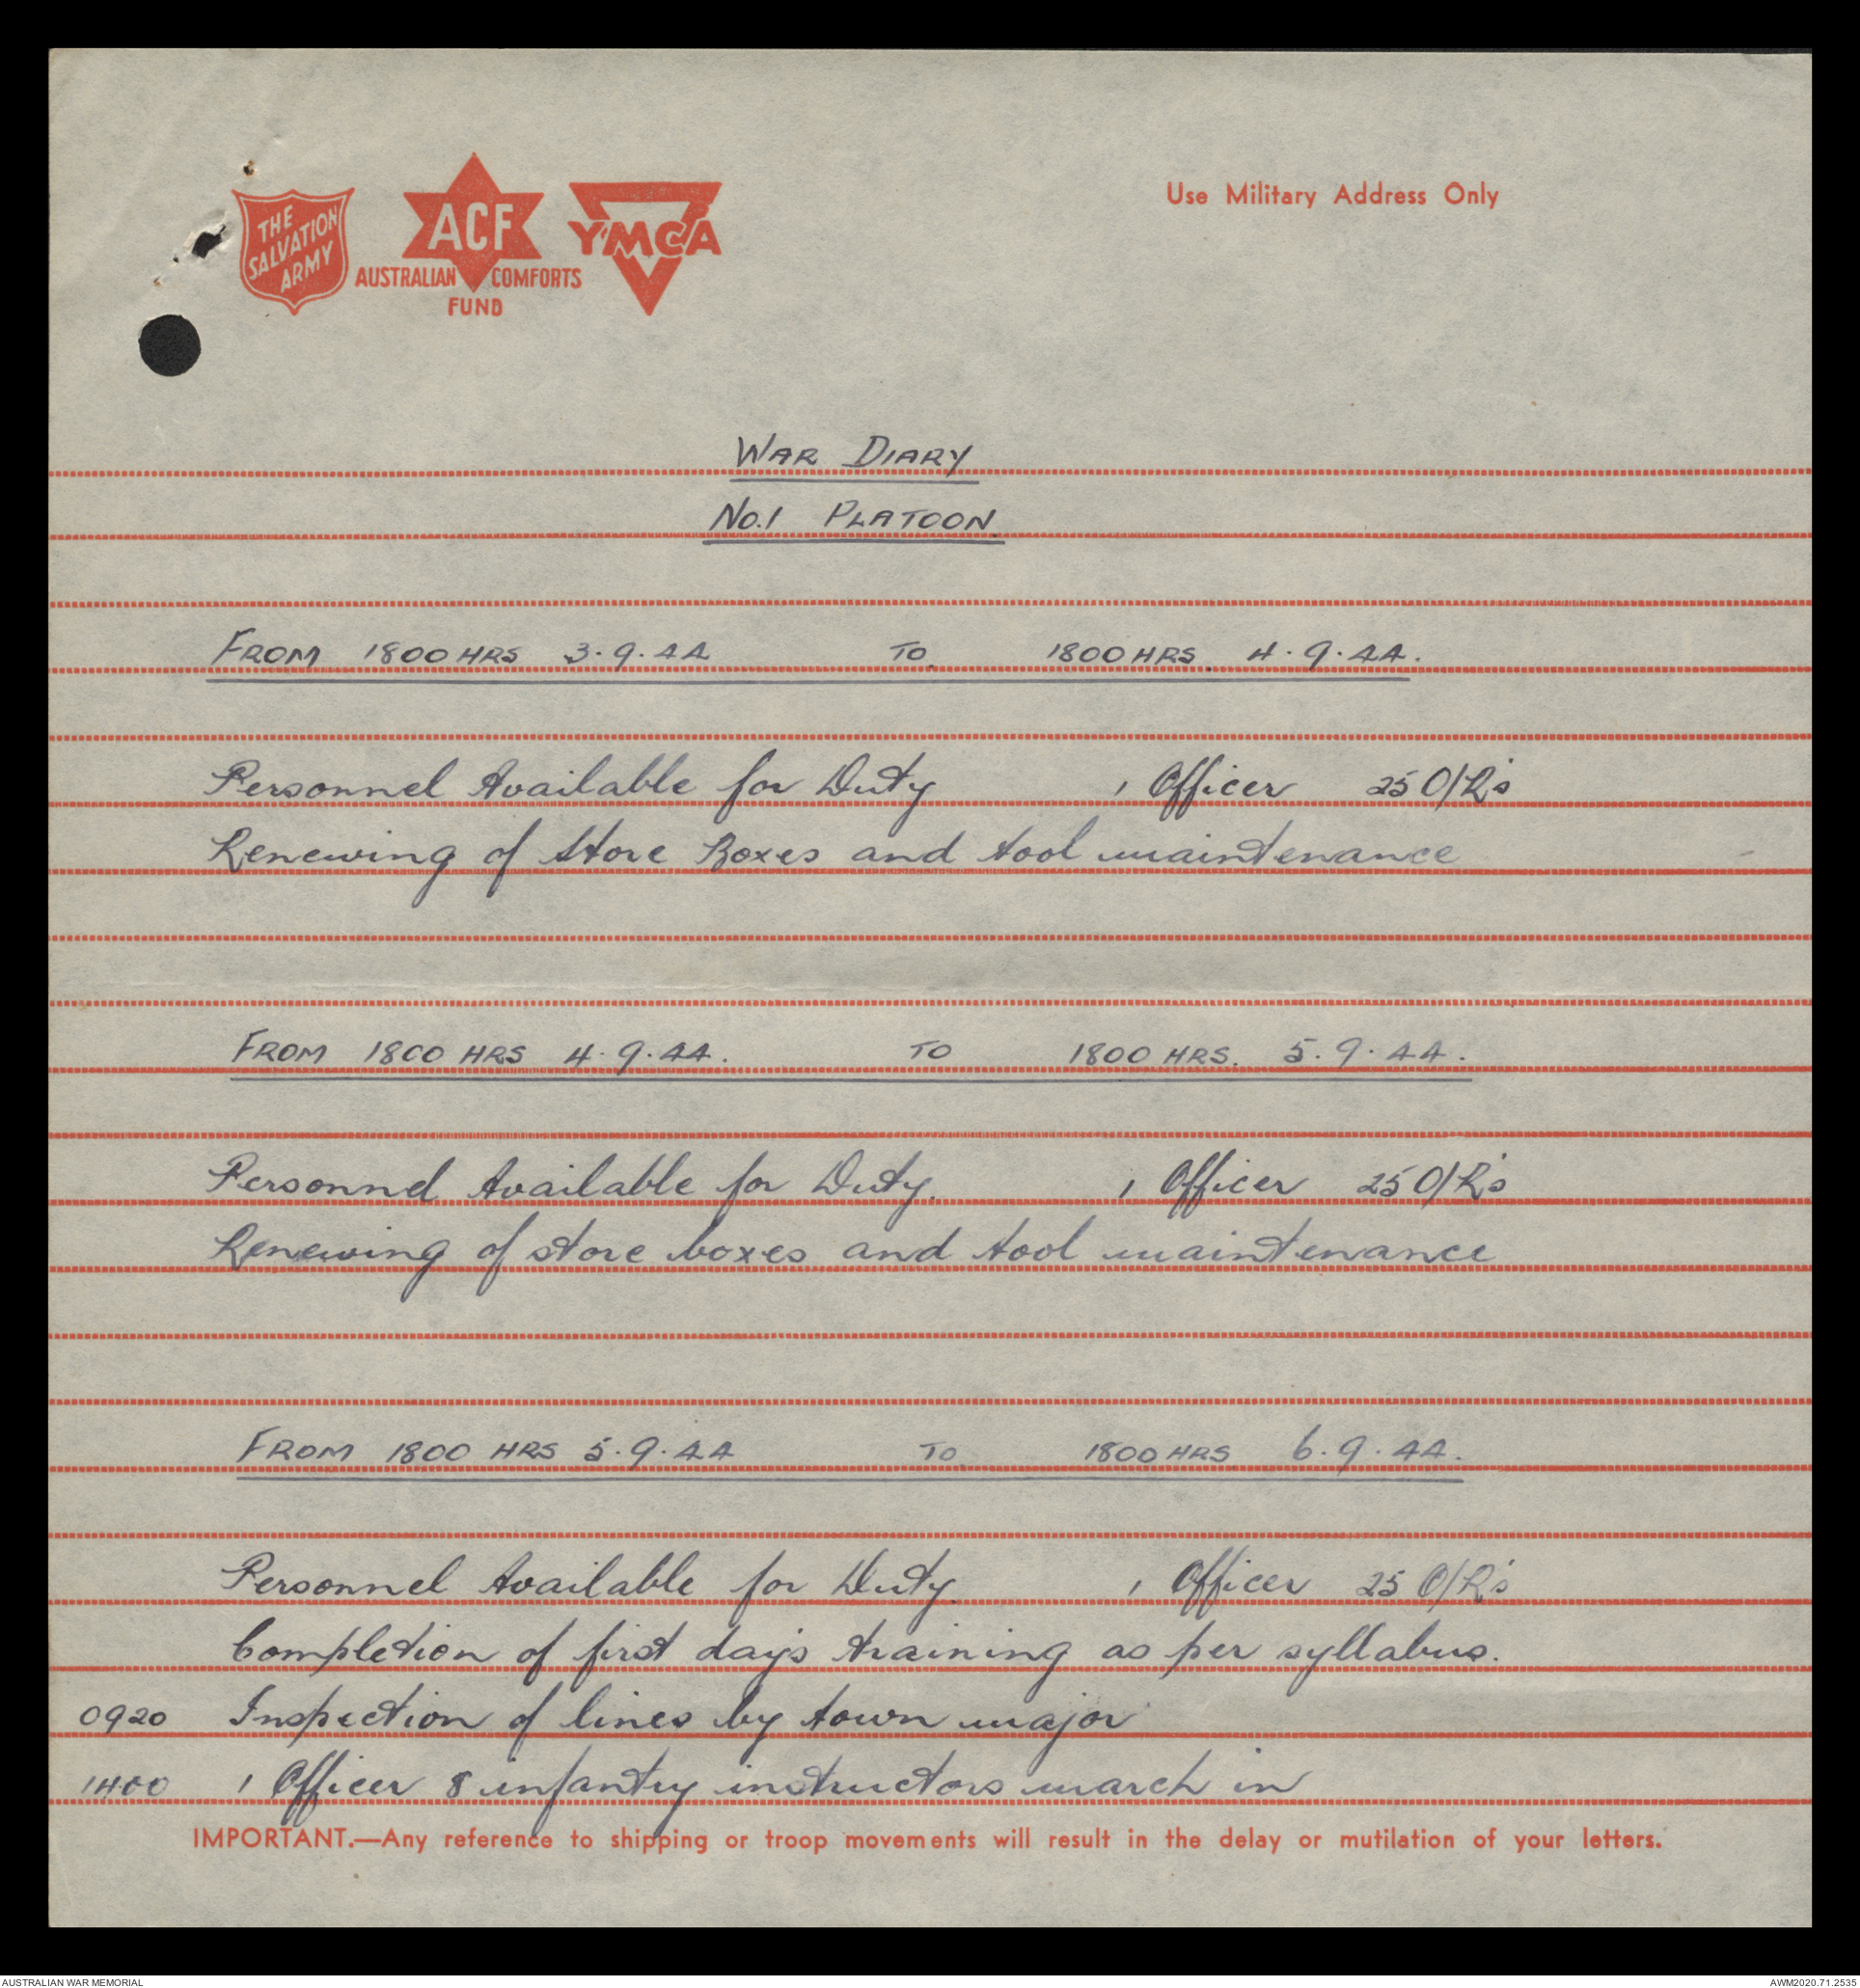 THE
SALVATION
ARMY
ACF
AUSTRALIAN COMFORTS
FUND
YMCA
Use Military Address Only
WAR DIARY
NO.1 PLATOON
FROM 1800 HRS 3.9.44 TO 1800 HRS. 4.9.44.
Personnel Available for Duty 1 Officer 25 O/R's
Renewing of Store Boxes and tool maintenance
FROM 1800 HRS 4.9.44. TO 1800 HRS. 5.9.44.
Personnel Available for Duty. 1 Officer 25 O/R's
Renewing of store boxes and tool maintenance
FROM 1800 HRS 5.9.44 TO 1800 HRS 6.9.44.
Personnel Available for Duty. 1 Officer 25 O/R's
Completion of first day's training as per syllabus.
0920 Inspection of lines by town major
1400 1 Officer 8 infantry instructors march in
IMPORTANT.—Any reference to shipping or troop movements will result in the delay or mutilation of your letters.
AUSTRALIAN WAR MEMORIAL AWM2020.71.2535